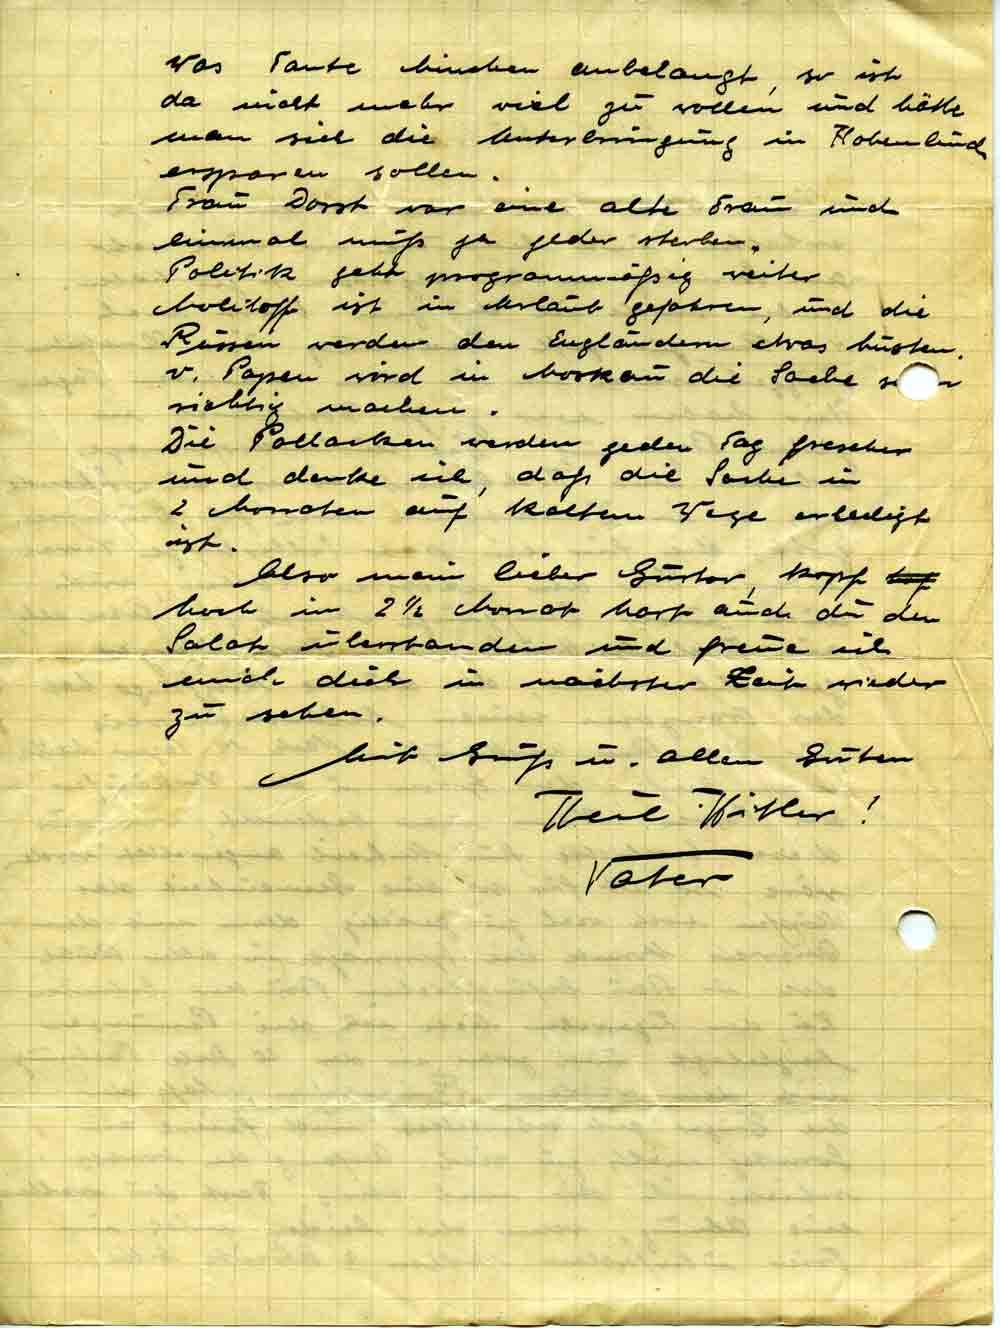 Was Tante Minchen anbelangt, so ist
da nicht mehr viel zu wollen und hätte
man sich die Unterbringung in Hohenlind
ersparen sollen.
Frau Dorst war eine alte Frau und
einmal muß ja jeder sterben.
Politik geht programmäßig weiter
Molitoff ist in Urlaub gefahren, und die
Russen werden den Engländern etwas husten.
v. Papen wird in Moskau die Sache
richtig machen.
Die Pollacken werden jeden Tag frescher
und denke ich, daß die Sache in
2 Monaten auf kaltem Wege erledigt
ist.
Also mein lieber Gustav, Kopf
hoch in 2 ½ Monat hast auch du den
Salat überstanden und freue ich
mich dich in nächster Zeit wieder
zu sehen.
Mit Gruß u. allen Guten
Heil Hitler!
Vater